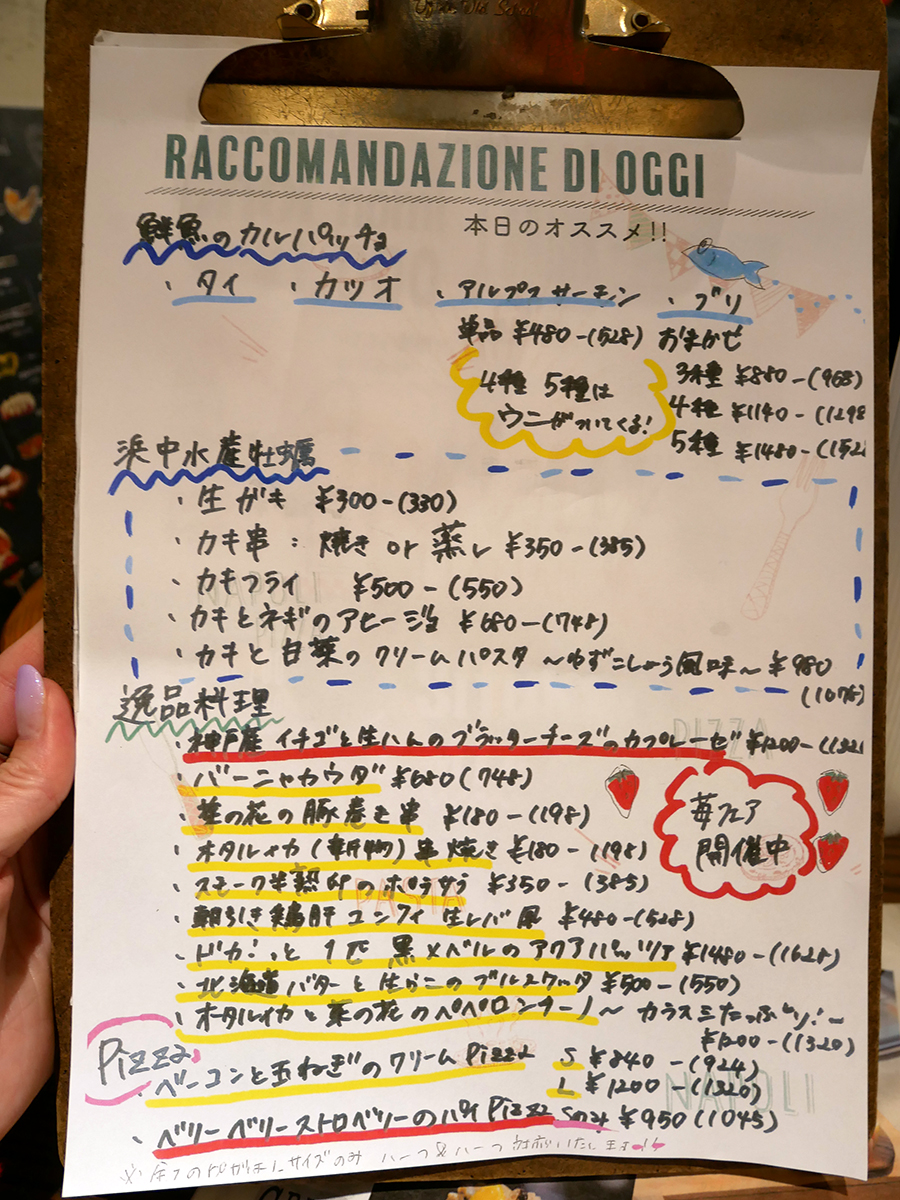 RACCOMANDAZIONE DI OGGI
本日のオススメ!!
鮮魚のカルパッチョ
・タイ ・カツオ ・アルプスサーモン ・ブリ
単品 ¥480-(528) おまかせ
3種 ¥880-(968)
4種 ¥1140-(1298
5種 ¥1480-(152
4種 5種は
ウニがついてくる!
浜中水産牡蠣
・生がき ¥300-(330)
・カキ串: 焼き or 蒸し ¥350-(385)
・カキフライ ¥500-(550)
・カキとネギのアヒージョ ¥680-(748)
・カキと白菜のクリームパスタ ~ゆずこしょう風味~ ¥980
(1078)
逸品料理
・神戸産 イチゴと生ハムのブラッターチーズのカプレーゼ ¥1200-(132
・バーニャカウダ ¥680(748)
・菜の花の豚巻き串 ¥180-(198)
・ホタルイカ(新物)串焼き ¥180-(198)
・スモーク半熟卵のポテサラ ¥350-(385)
・朝引き鶏肝コンフィ 生レバ風 ¥480-(528)
・ドカンっと 1匹 黒メバルのアクアパッツァ ¥1480-(1628)
・北海道バターと生うにのブルスケッタ ¥500-(550)
・ホタルイカと菜の花のペペロンチーノ~カラスミたっぷり!~
¥1200-(1320)
苺フェア
開催中
Pizza
・ベーコンと玉ねぎのクリーム Pizza S ¥840-(924)
L ¥1200-(1320)
・ベリーベリーストロベリーのパイ Pizza Sのみ ¥950(1045)
サイズのみ ハーフ&ハーフ 対応いたします!!
PIZZA
PASTA
NAPOLI